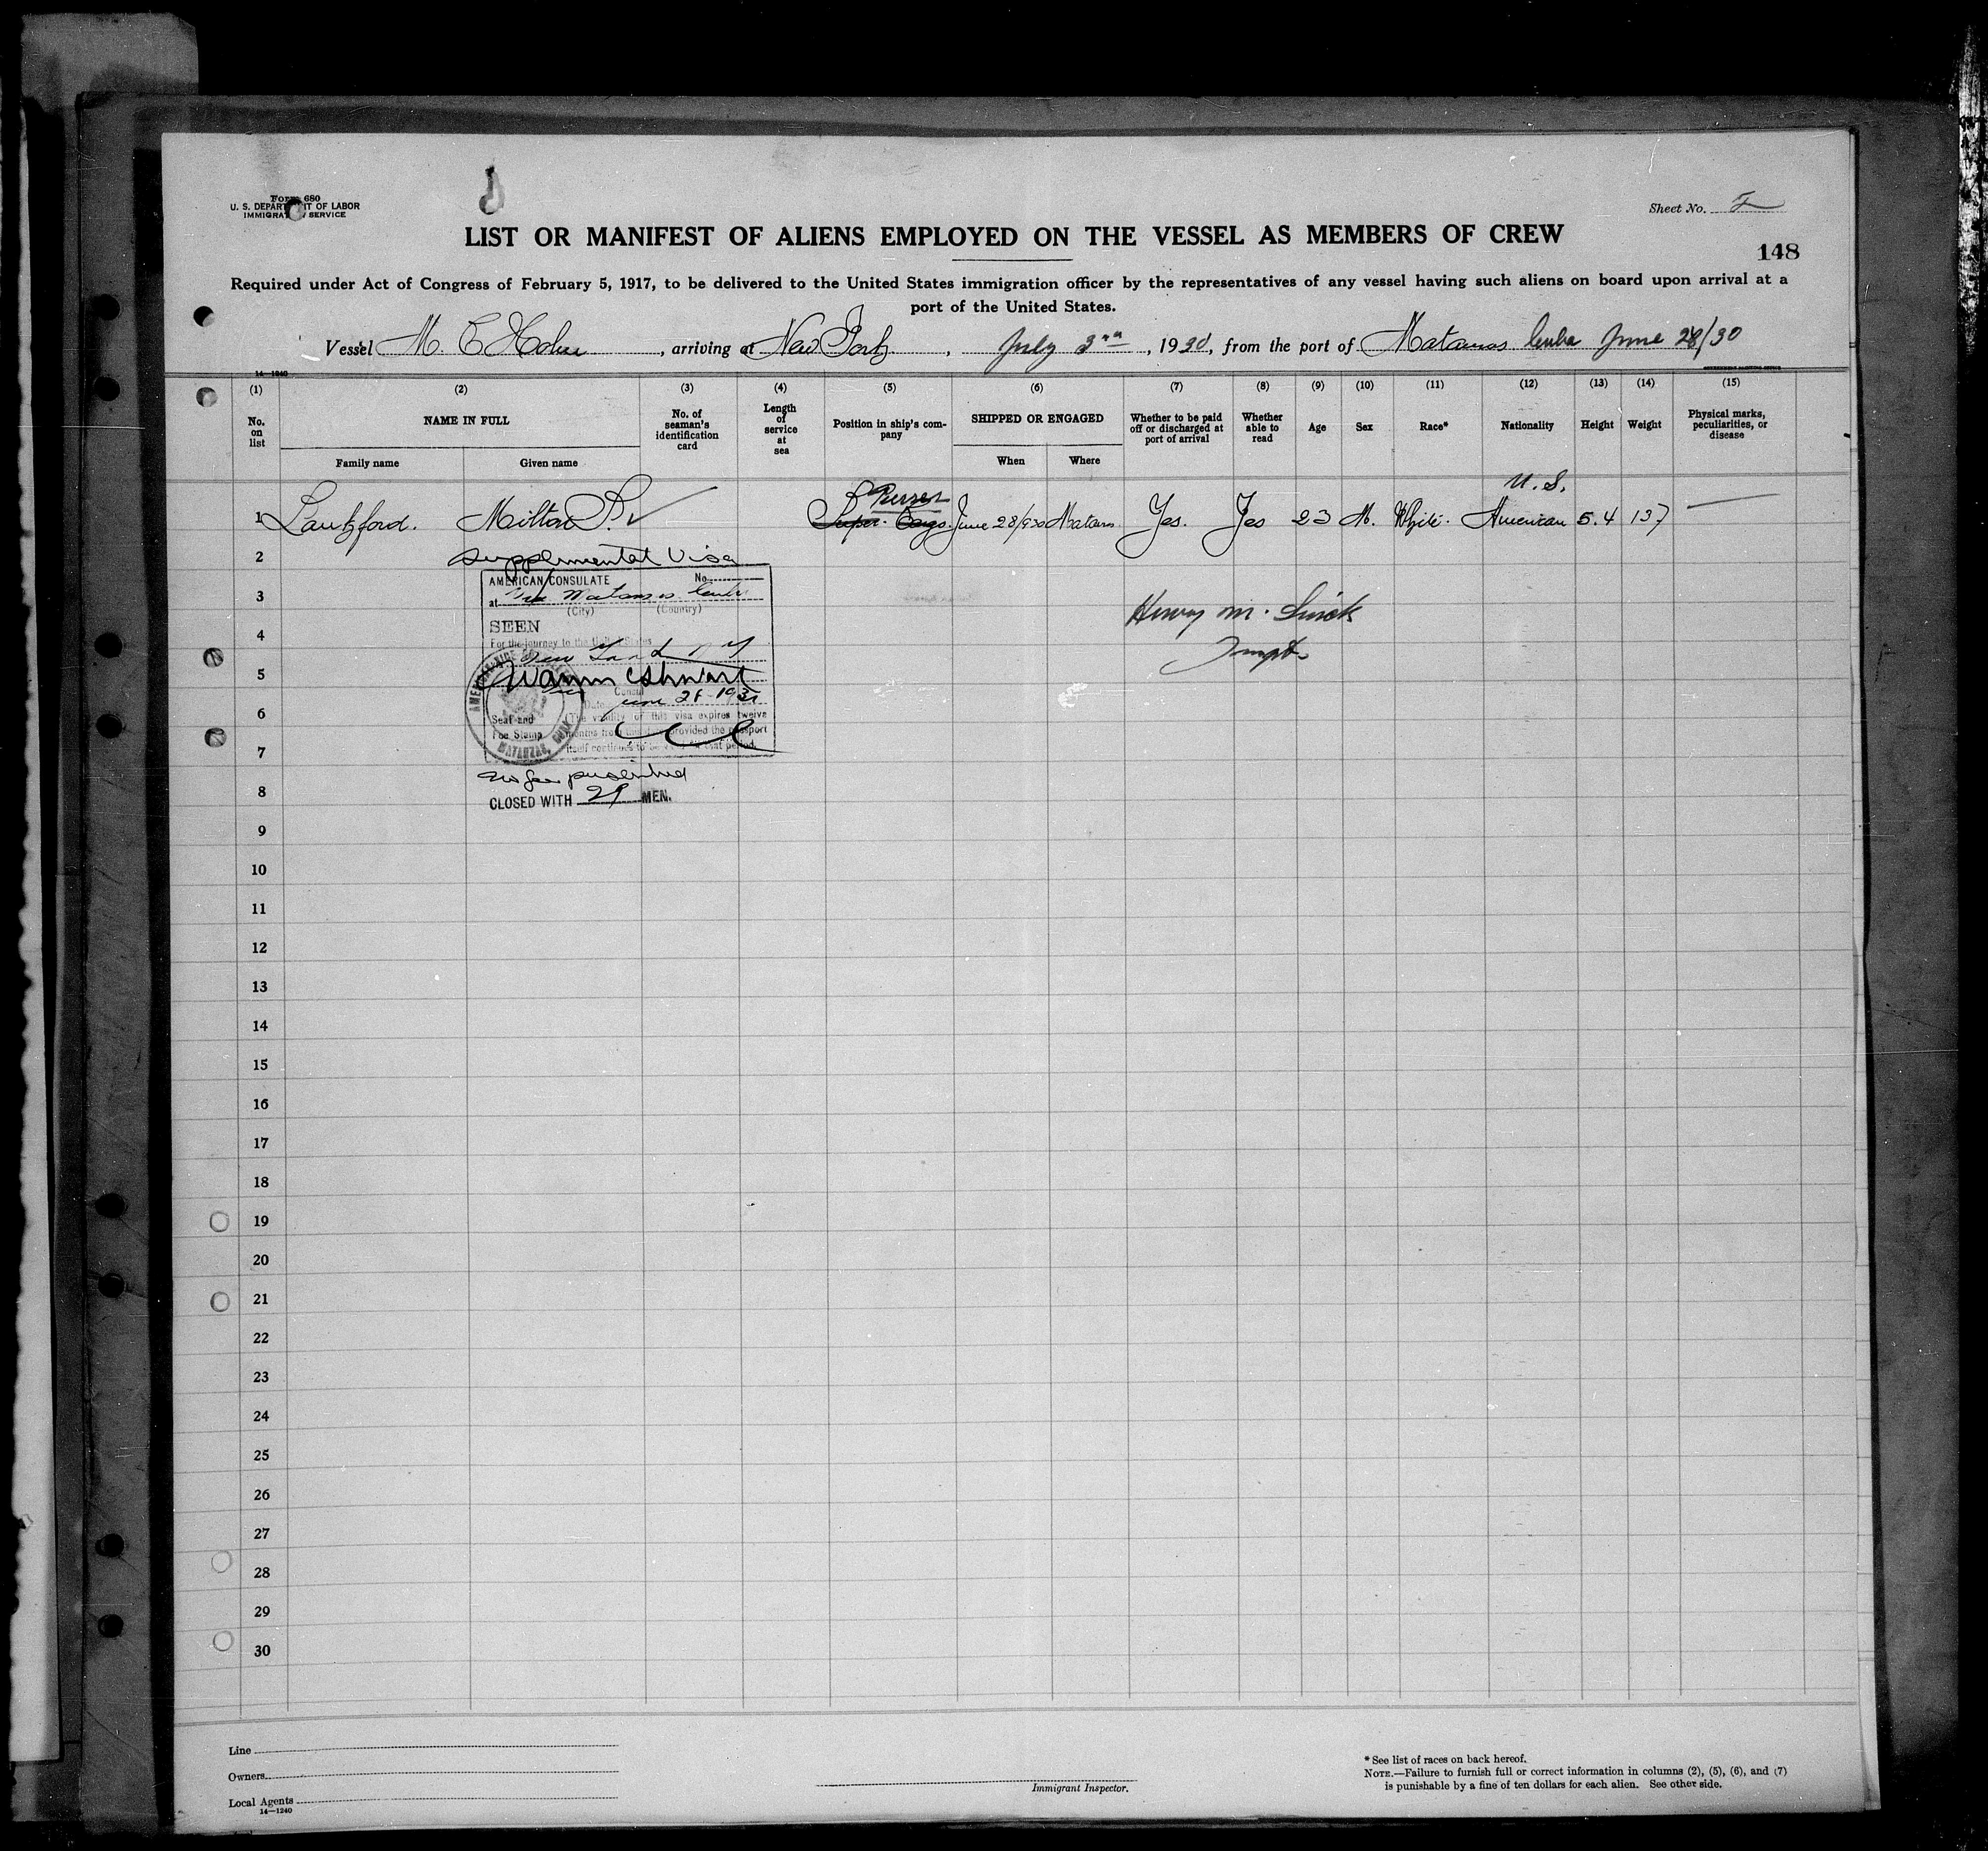 Form 680
U. S. DEPARTMENT OF LABOR
IMMIGRATION SERVICE
Sheet No.
LIST OR MANIFEST OF ALIENS EMPLOYED ON THE VESSEL AS MEMBERS OF CREW
148
Required under Act of Congress of February 5, 1917, to be delivered to the United States immigration officer by the representatives of any vessel having such aliens on board upon arrival at a
port of the United States.
Vessel M. C. , arriving at New York , July 3rd , 1930, from the port of Matanzas Cuba June 28/30
14—1240
(1) (2) (3) (4) (5) (6) (7) (8) (9) (10) (11) (12) (13) (14) (15)
No. on list NAME IN FULL No. of seaman's identification card Length of service at sea Position in ship's company SHIPPED OR ENGAGED Whether to be paid off or discharged at port of arrival Whether able to read Age Sex Race* Nationality Height Weight Physical marks, peculiarities, or disease
Family name Given name When Where
Purser U. S.
1 Milton Super Cargo. June 28/930 Matans. Yes. Yes 23 M. White. American 5.4 137
2 Supplemental Visa
AMERICAN CONSULATE No.
3 at Matanzas Cuba
(City) (Country)
Henry M.
SEEN
4 For the journey to the United States
5
Consul
6 Date June 28-1930
Seal and (The validity of this visa expires twelve
Fee Stamp months from this date provided the passport
7 itself continues to be valid for that period.
AMERICAN VICE CONSULATE MATANZAS, CUBA
No fee prescribed
8 CLOSED WITH 29 MEN.
9
10
11
12
13
14
15
16
17
18
19
20
21
22
23
24
25
26
27
28
29
30
Line
Owners
Local Agents
14—1240
Immigrant Inspector.
* See list of races on back hereof.
NOTE.—Failure to furnish full or correct information in columns (2), (5), (6), and (7)
is punishable by a fine of ten dollars for each alien. See other side.